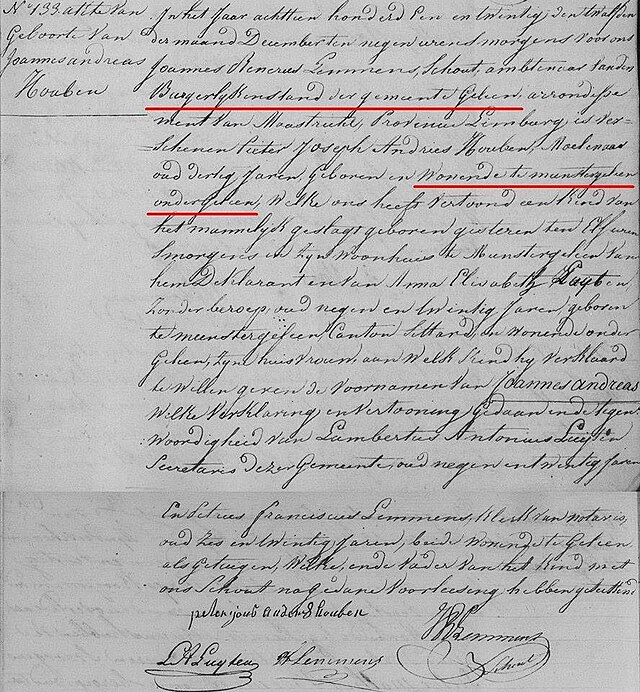 No 133 akte van
Geboorte van
Joannes andreas
Houben
In het Jaar achttien honderd Een en twintig, den twalfden
der maand December ten negen uren smorgens voor ons
Joannes Renerus Lemmens, Schout, ambtenaar van den
Burgerlyken stand der gemeente Geleen, arrondisse
ment van Maastricht, Provincie Limburg, is ver-
schenen Pieter Joseph Andries Houben, Molenaar
oud dertig Jaren, Geboren en Wonende te munstergeleen
onder Geleen, Welke ons heeft vertoond een Kind van
het mannelyk geslagt geboren gisteren ten Elf uren
Smorgens in Zyn Woonhuis te Munstergeleen van
hem Deklarant en van Anna Elisabeth Luyten
Zonder beroep, oud negen en twintig Jaren, geboren
te meunstergeleen, Canton Sittard, en wonende onder
Geleen, Zyne huisvrouw, aan Welk Kind hy verklaard
te Willen geven de voornamen van Joannes andreas
Welke verklaring en vertooning Gedaan in de tegen-
woordigheid van Lambertus Antonius Luyten
Secretaris dezer Gemeente, oud negen en twintig Jaren
En Petrus Franciscus Lemmens, Klerk van notaris,
oud Zes en twintig Jaren, beide Wonende te Geleen
als getuigen, Welke, en de vader van het Kind met
ons Schout na gedane voorlezing hebben geteekend
peter josep andries Houben
LA Luyten
Lemmens
JR Lemmens
Schout